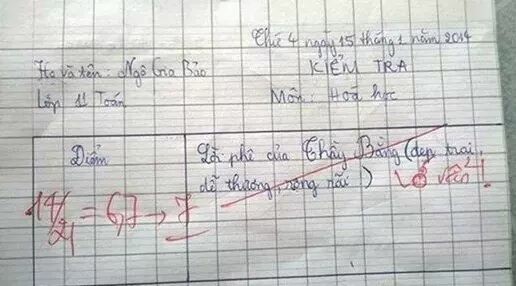 Thứ 4 ngày 15 tháng 1 năm 2014
Họ và tên: Ngô Gia Bảo
KIỂM TRA
Lớp 11 Toán
Môn: Hoá học
Điểm
Lời phê của Thầy Bằng (đẹp trai,
dễ thương, nóng nãi!)
14/21 = 6,7 → 7
vẽ viển!